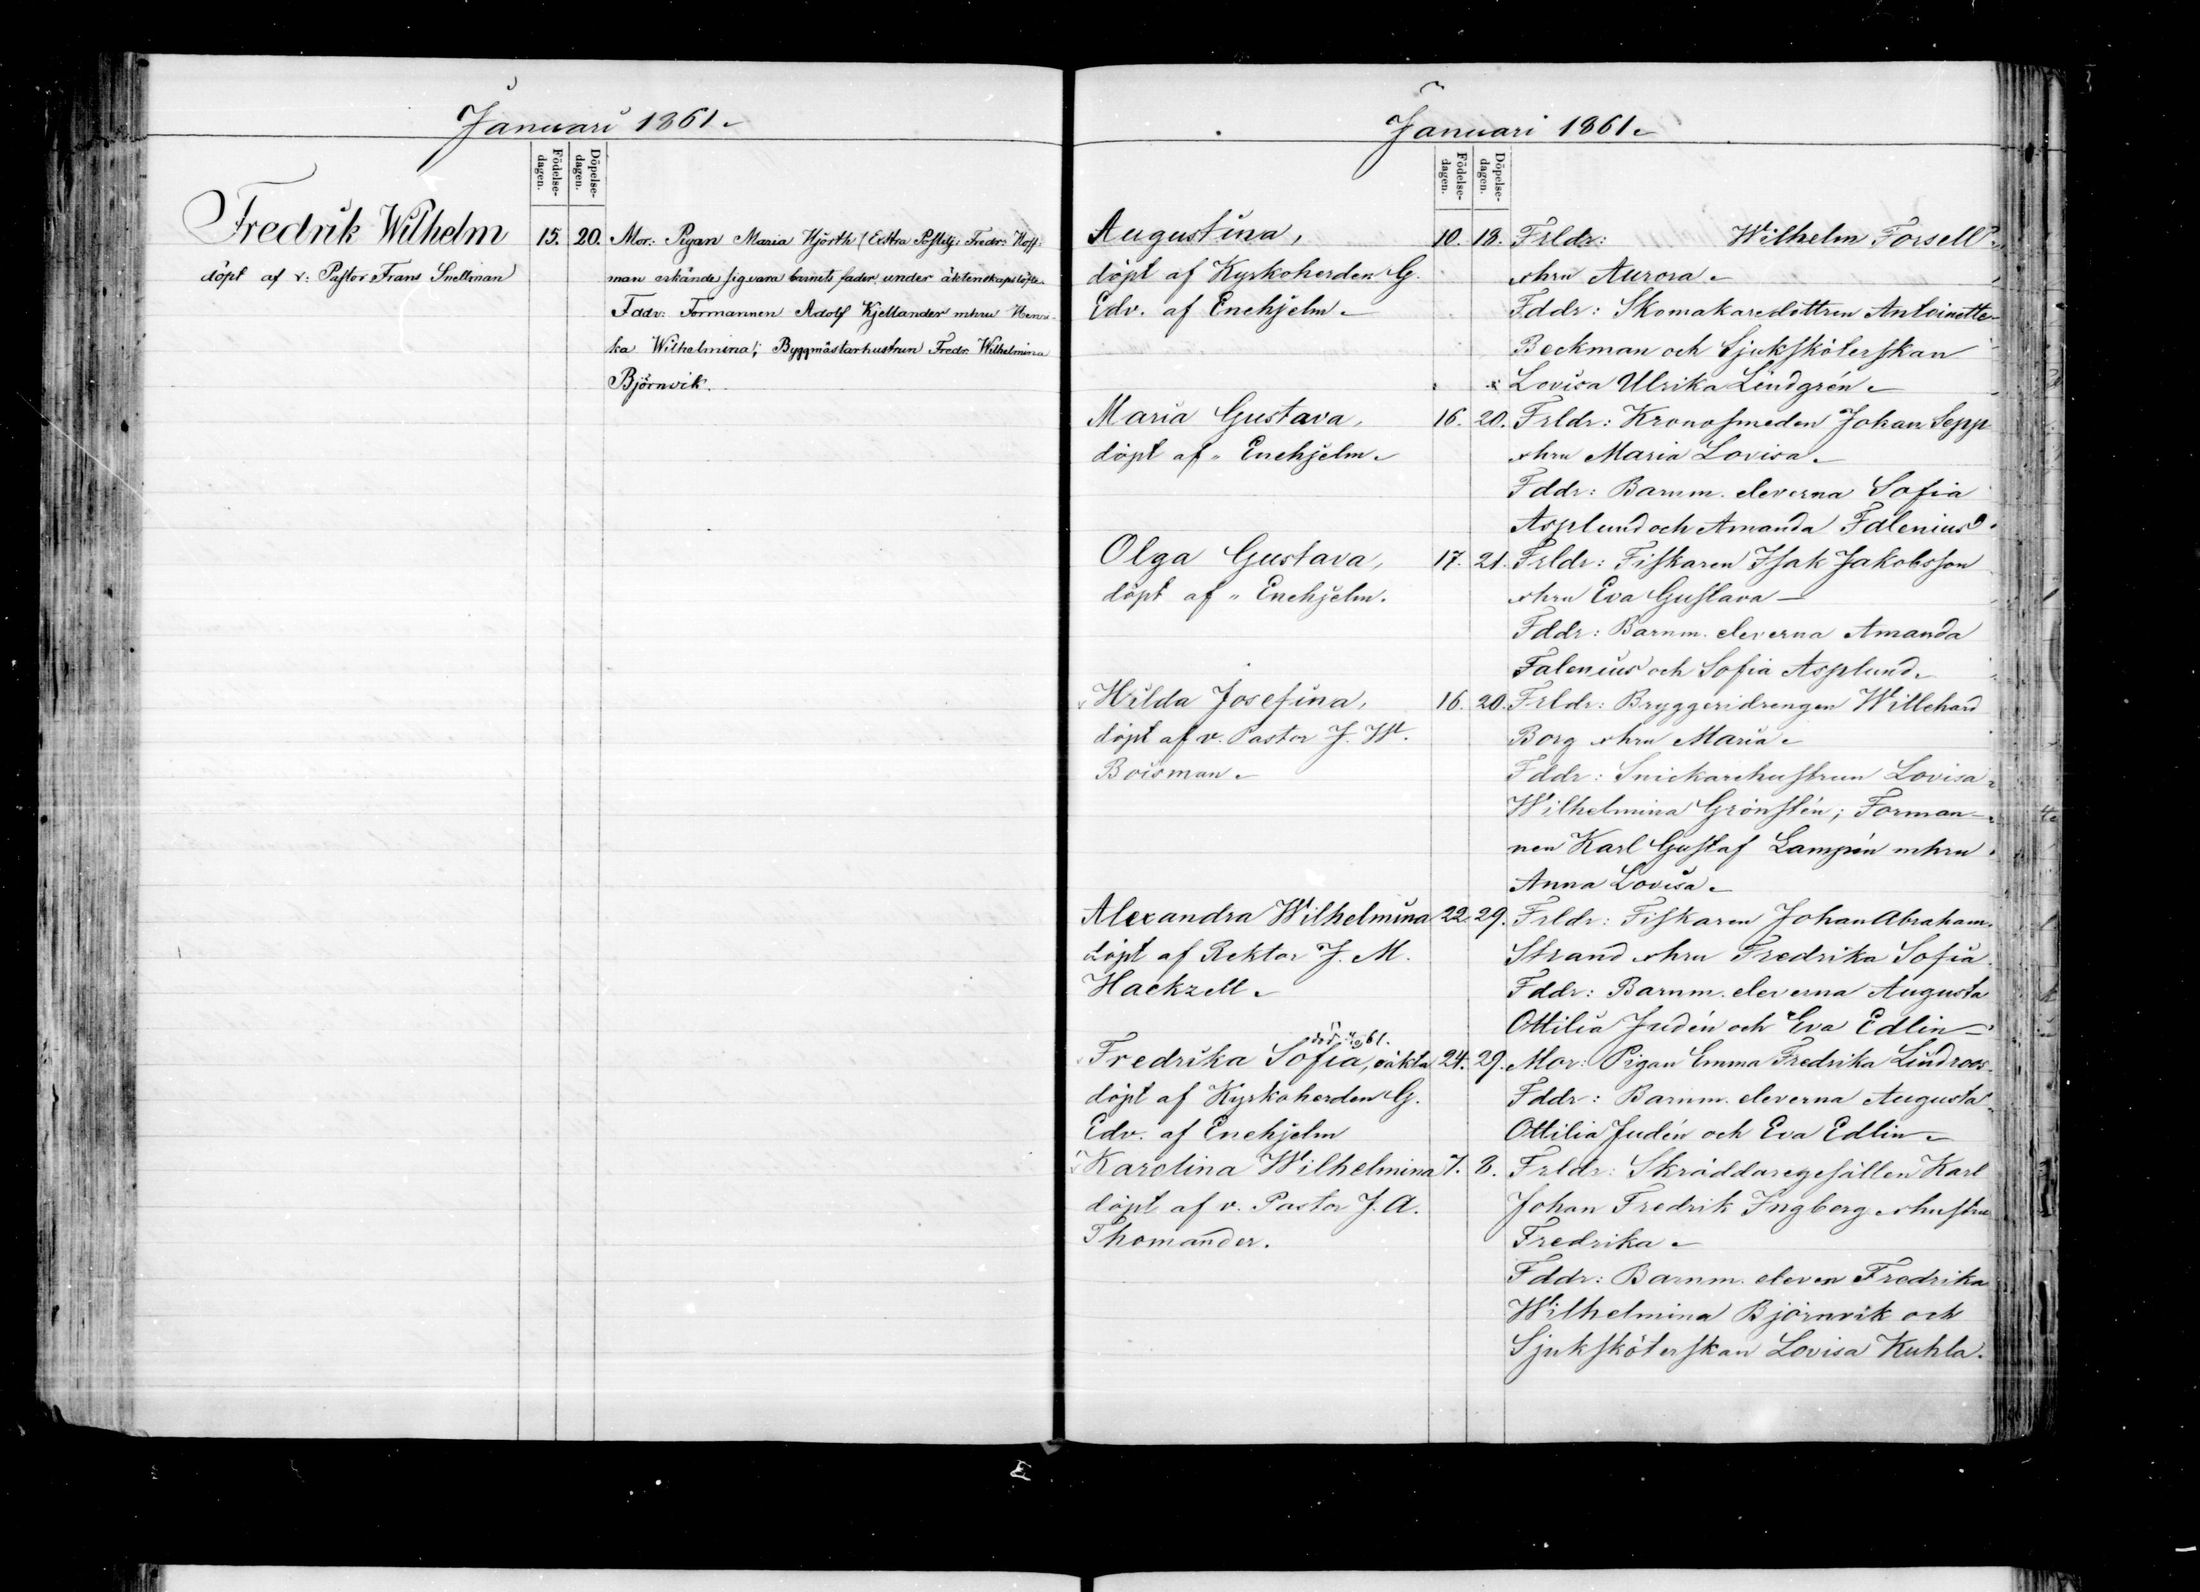 Januari 1861.
Födelse-dagen.
Döpelse-dagen.
Fredrik Wilhelm 15. 20. Mor: Pigan Maria Hjörth (Extra Postilj: Fredr: Hoff-
döpt af v: Pastor Frans Snellman
man erkände sig vara barnets fader under äktenskapslöfte.
Faddr: Formannen Adolf Kjellander mhru Hen-
ka Wilhelmina; Byggmästarhustrun Fredr. Wilhelmina
Björnvik.
Januari 1861.
Födelse-dagen.
Döpelse-dagen.
Augustina, 10. 18. Frldr: Wilhelm Forsell
döpt af Kyrkoherden G. ohru Aurora.
Edv. af Enehjelm. Fddr: Skomakaredottren Antoinette
Beckman och Sjuksköterskan
Lovisa Ulrika Lindgrén.
Maria Gustava, 16. 20. Frldr: Kronosmeden Johan Sepp
döpt af " Enehjelm. ohru Maria Lovisa.
Fddr: Barnm. eleverna Sofia
Asplund och Amanda Falenius.
Olga Gustava, 17. 21. Frldr: Fiskaren Isak Jakobsson
döpt af " Enehjelm. ohru Eva Gustava
Fddr: Barnm. eleverna Amanda
Falenius och Sofia Asplund.
Hilda Josefina, 16. 20. Frldr: Bryggeridrengen Willehard
döpt af v. Pastor J. W. Borg ohru Maria.
Boisman. Fddr: Snickarehustrun Lovisa
Wilhelmina Grönstén; Forman-
nen Karl Gustaf Lampén mhru
Anna Lovisa.
Alexandra Wilhelmina 22. 29. Frldr: Fiskaren Johan Abraham
döpt af Rektor J. M. Strand ohru Fredrika Sofia
Hackzell. Fddr: Barnm. eleverna Augusta
Ottilia Judén och Eva Edlin
död 61.
Fredrika Sofia, oäkta 24. 29. Mor: Pigan Emma Fredrika Lindroos.
döpt af Kyrkoherden G. Fddr: Barnm. eleverna Augusta
Edv. af Enehjelm Ottilia Judén och Eva Edlin.
Karolina Wilhelmina 7. 8. Frldr: Skräddaregesällen Karl
döpt af v. Pastor J. A. Johan Fredrik Ingberg ohustru
Thomander. Fredrika.
Fddr: Barnm. eleven Fredrika
Wilhelmina Björnvik och
Sjuksköterskan Lovisa Kuhla.